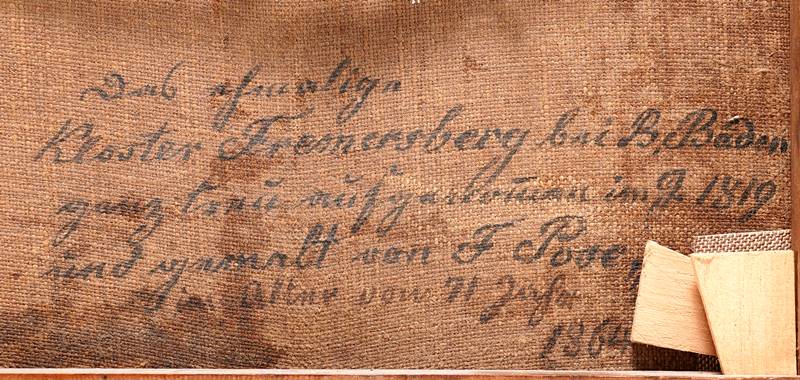 Das ehmalige
Kloster Fremersberg bei B. Baden
ganz treu aufgenommen im J. 1819
und gemalt von F
im Alter von 71 Jahr
1864